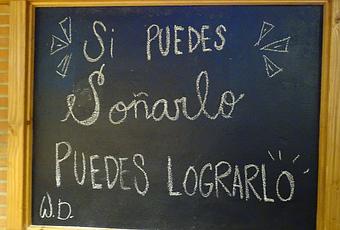 Si PUEDES
Soñarlo
PUEDES LOGRARLO
W.D.